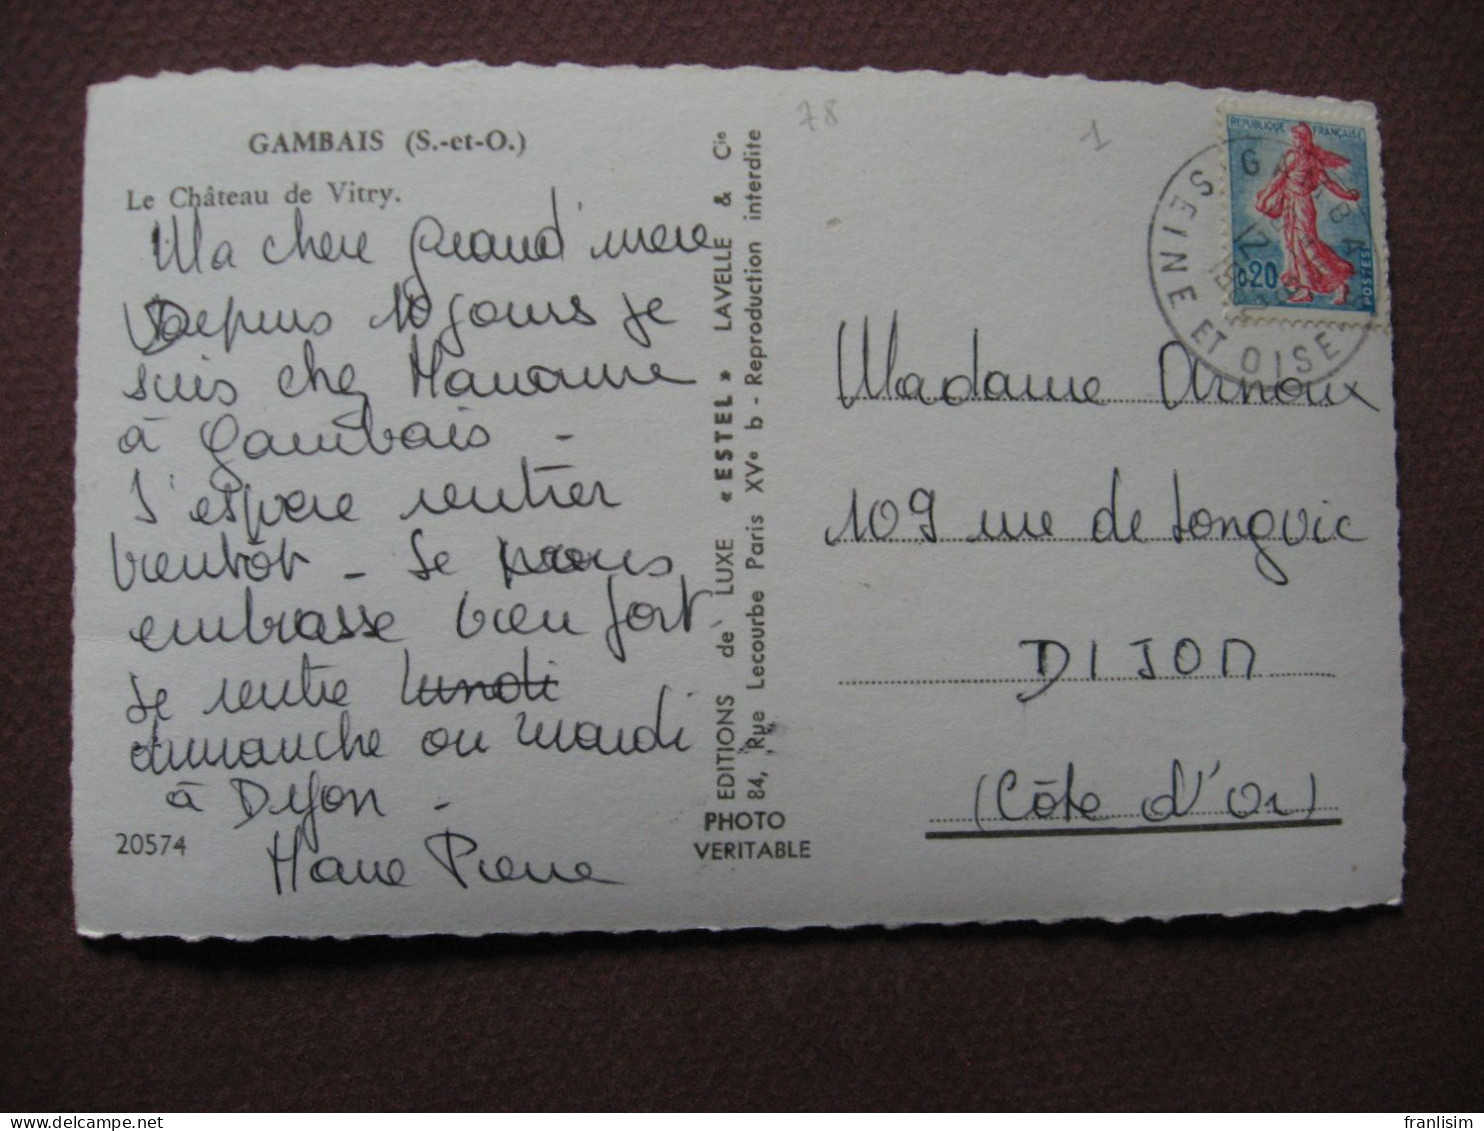 GAMBAIS (S.-et-O.)
Le Château de Vitry.
Ma chere Grand'mere
Depuis 10 jours je
suis chez Marianne
à Gambais -
J'espere rentrer
bientôt - Je vous
embrasse bien fort.
Je rentre lundi
dimanche ou mardi
à Dijon -
Marie Pierre
20574
EDITIONS de LUXE « ESTEL » LAVELLE & Cie
84, Rue Lecourbe Paris XVe b - Reproduction interdite
PHOTO
VERITABLE
78
1
REPUBLIQUE FRANÇAISE
0,20
POSTES
SEINE ET OISE
Madame Arnoux
109 rue de Longvic
DIJON
(Côte d'Or)
franlisim